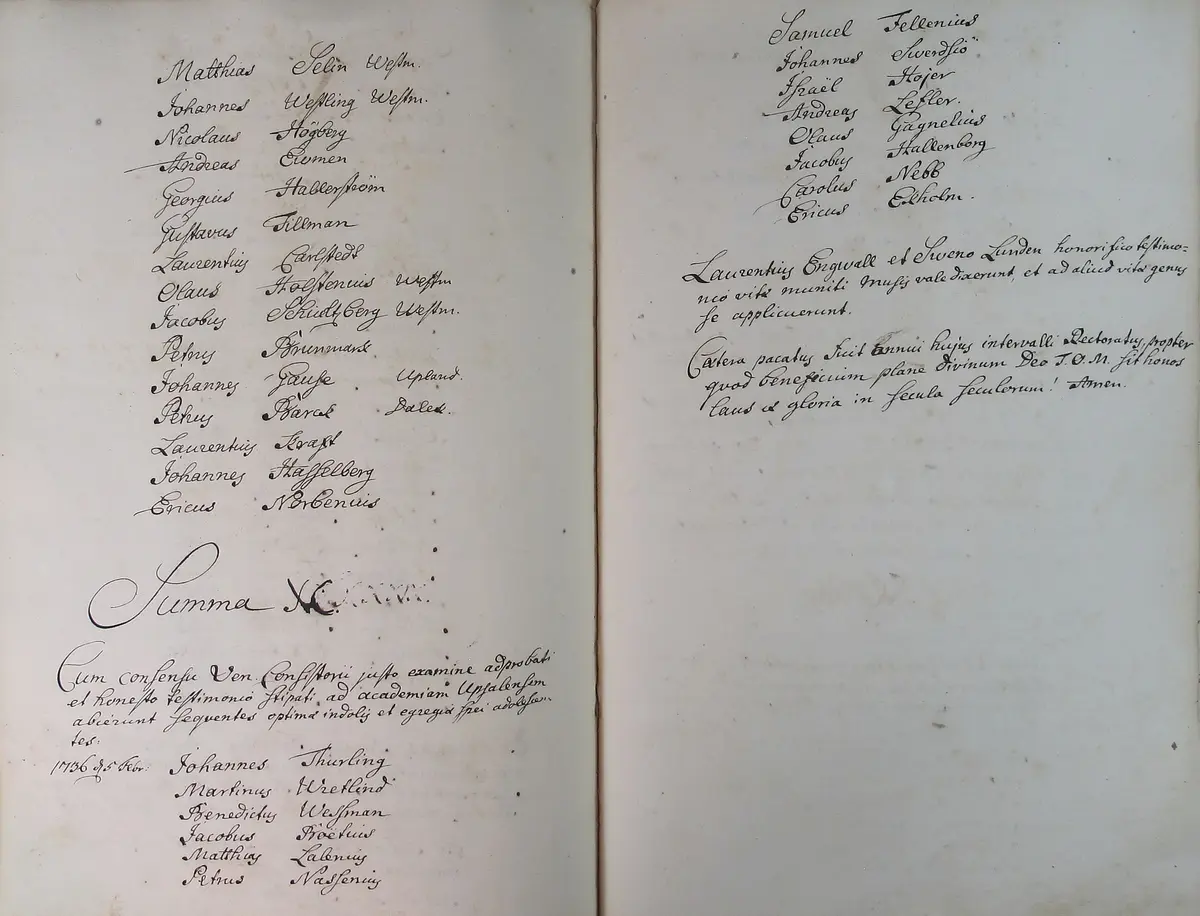 Matthias Selin Westm.
Johannes Westling Westm.
Nicolaus Högberg
Andreas Eurmen
Georgius Hallerström
Gustavus Tillman
Laurentius Carlstedt
Olaus Holstenius Westm
Jacobus Schudtzberg Westm.
Petrus Brunmark.
Johannes Gause Upland.
Petrus Barck Dalek.
Laurentius Kraft
Johannes Hasselberg
Ericus Norbenius
Summa XC
Cum consensu Ven. Consistorii justo examine adprobati
et honesto testimonio stipati ad academiam Upsalensem
abierunt sequentes optimæ indolis et egregiæ spei adolescen-
tes:
1736 d 5 Febr: Johannes Thurling
Martinus Wretlind
Benedictus Wessman
Jacobus Boëtius
Matthias Lalenius
Petrus Nassenius
Samuel Fellenius
Johannes Swerdsiö
Israël Hojer
Andreas Lefler.
Olaus Gagnelius
Jacobus Hallenborg
Carolus Nebb
Ericus Ekholm.
Laurentius Engwall et Sweno Lunden honorifico testimo-
nio vitæ muniti Musis valedixerunt, et ad aliud vitæ genus
se applicuerunt.
Cætera pacatus fuit annui hujus intervalli Rectoratus, propter
quod beneficium plane divinum Deo T.O.M. sit honos
laus & gloria in secula seculorum! Amen.